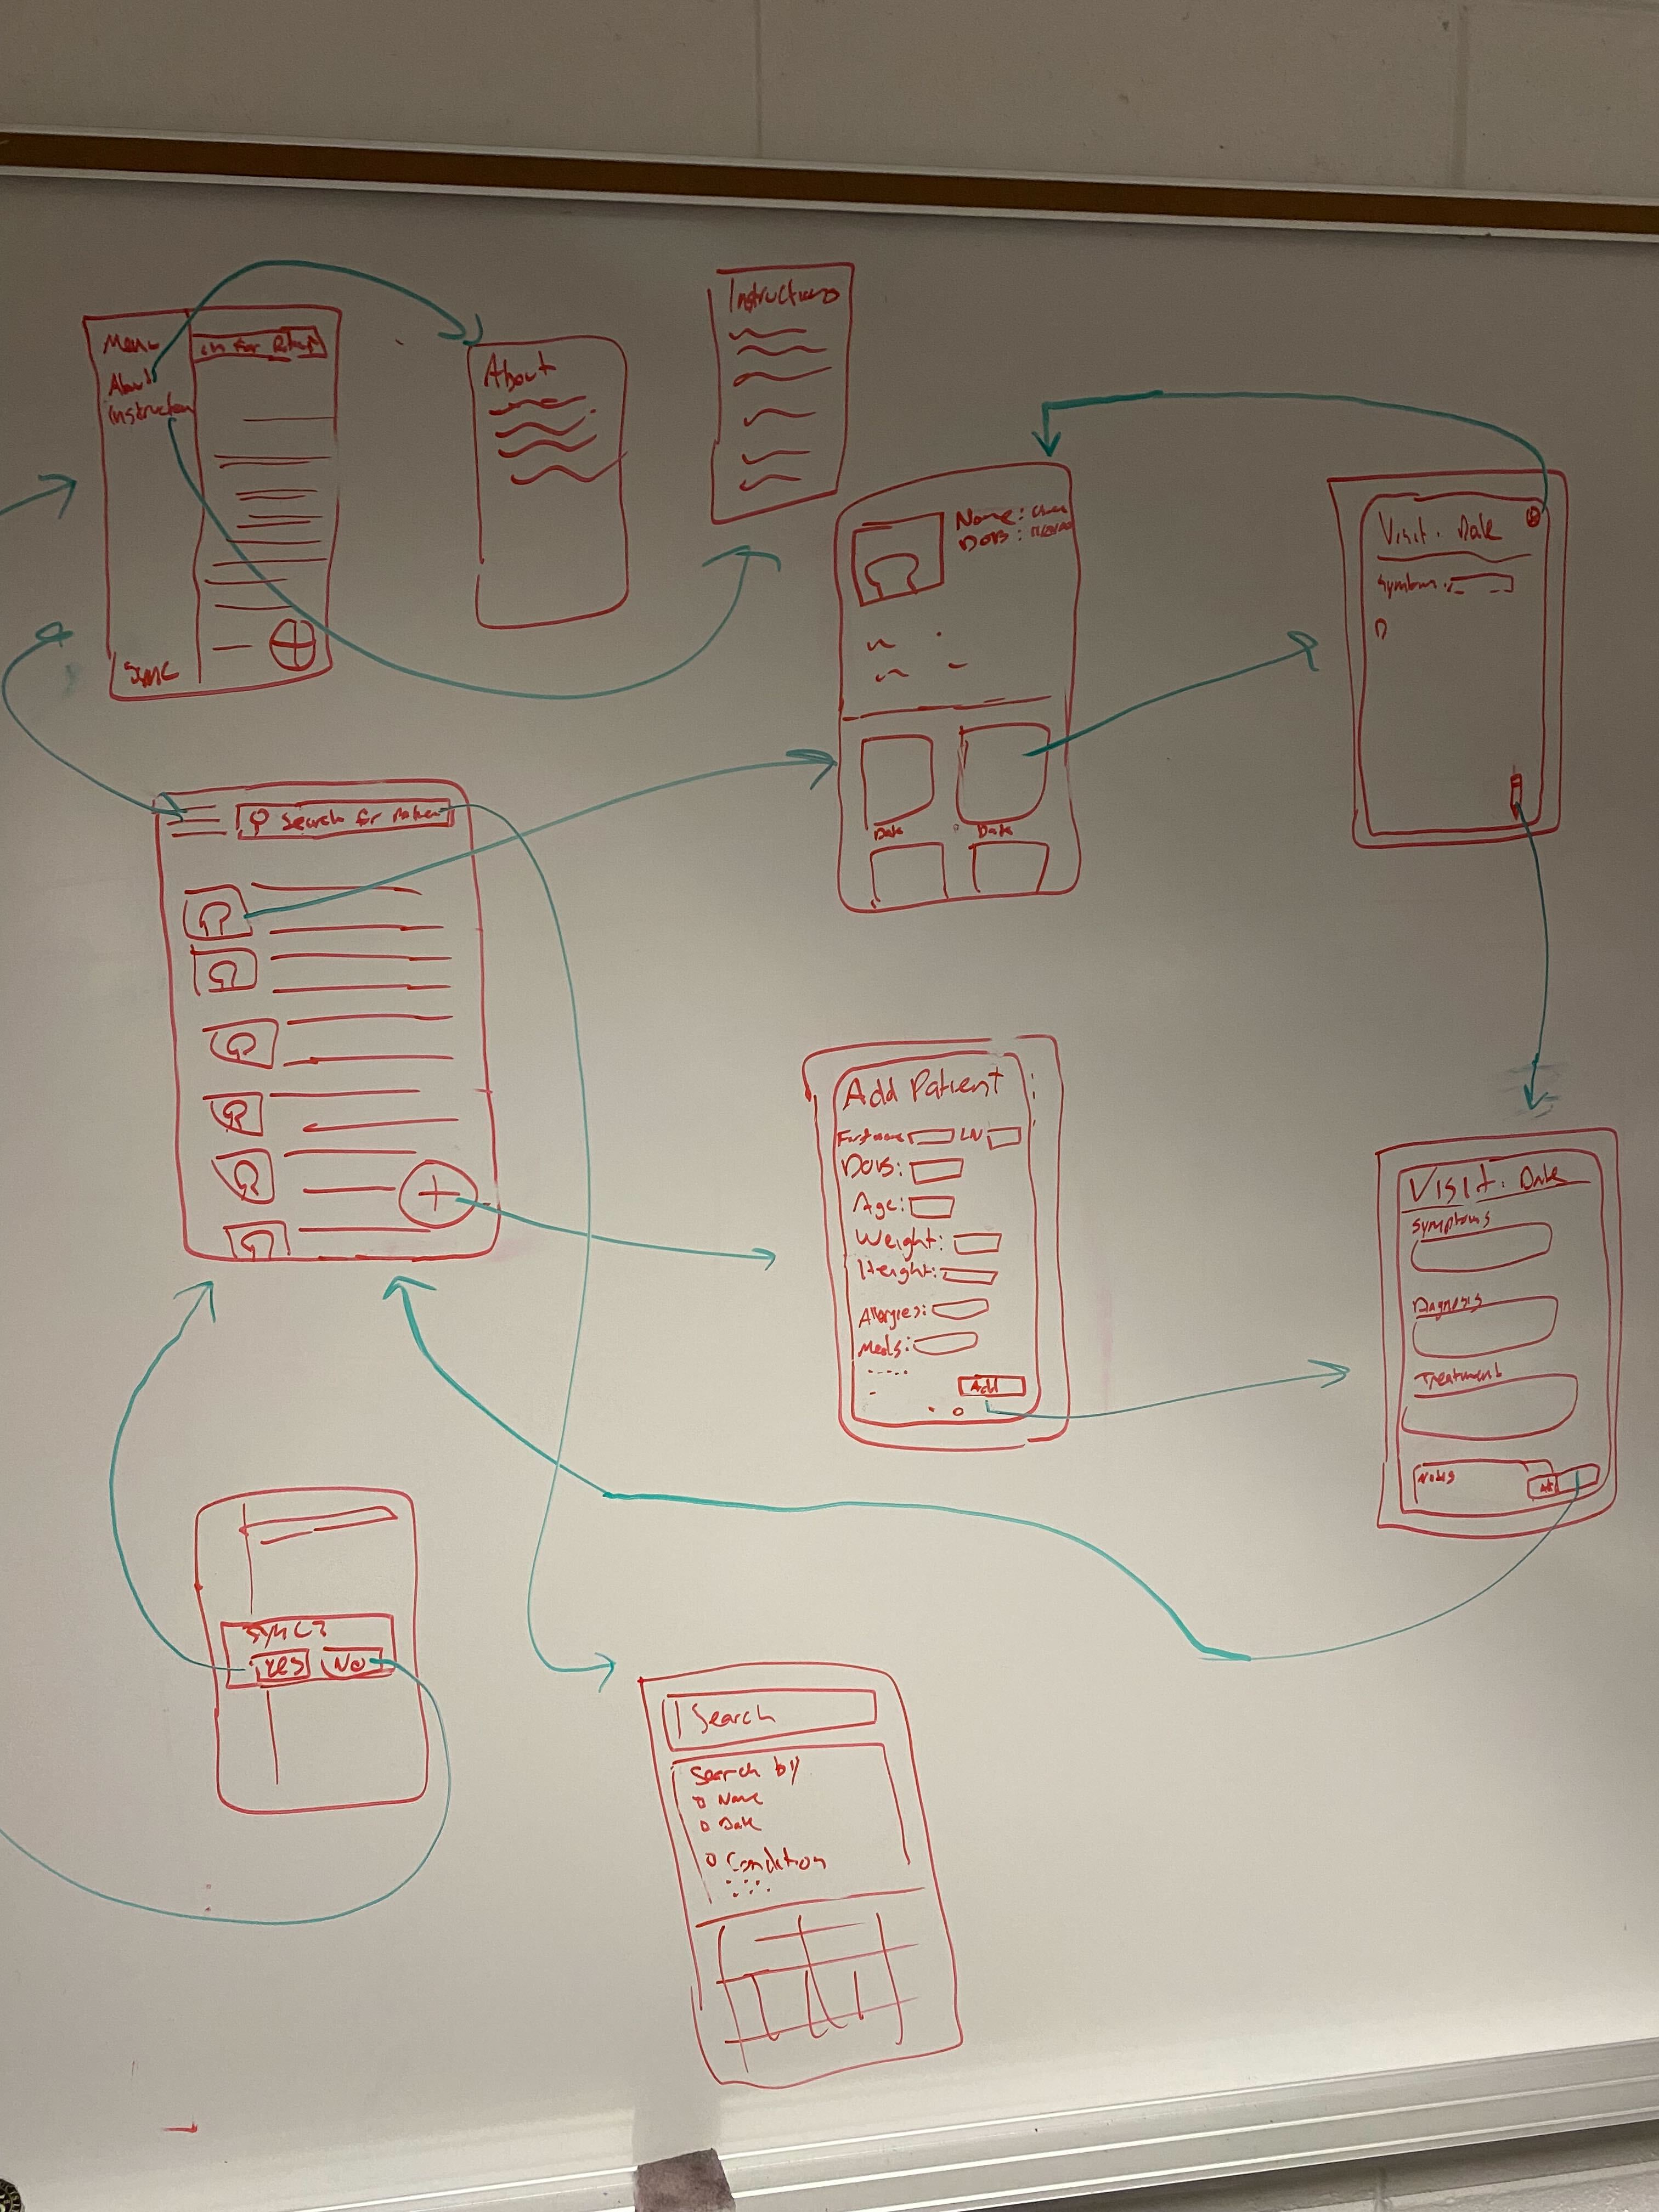 Menu
About
Instruction
SYNC
About
Instructions
Name:
DOB:
Date Date
Visit: Date
Search for Patient
Add Patient:
First name LN
DOB:
Age:
Weight:
Height:
Allergies:
Meds:
Add
Visit: Date
Symptoms
Diagnosis
Treatment
Notes
SYNC?
YES NO
Search
Search by
Name
Date
Condition